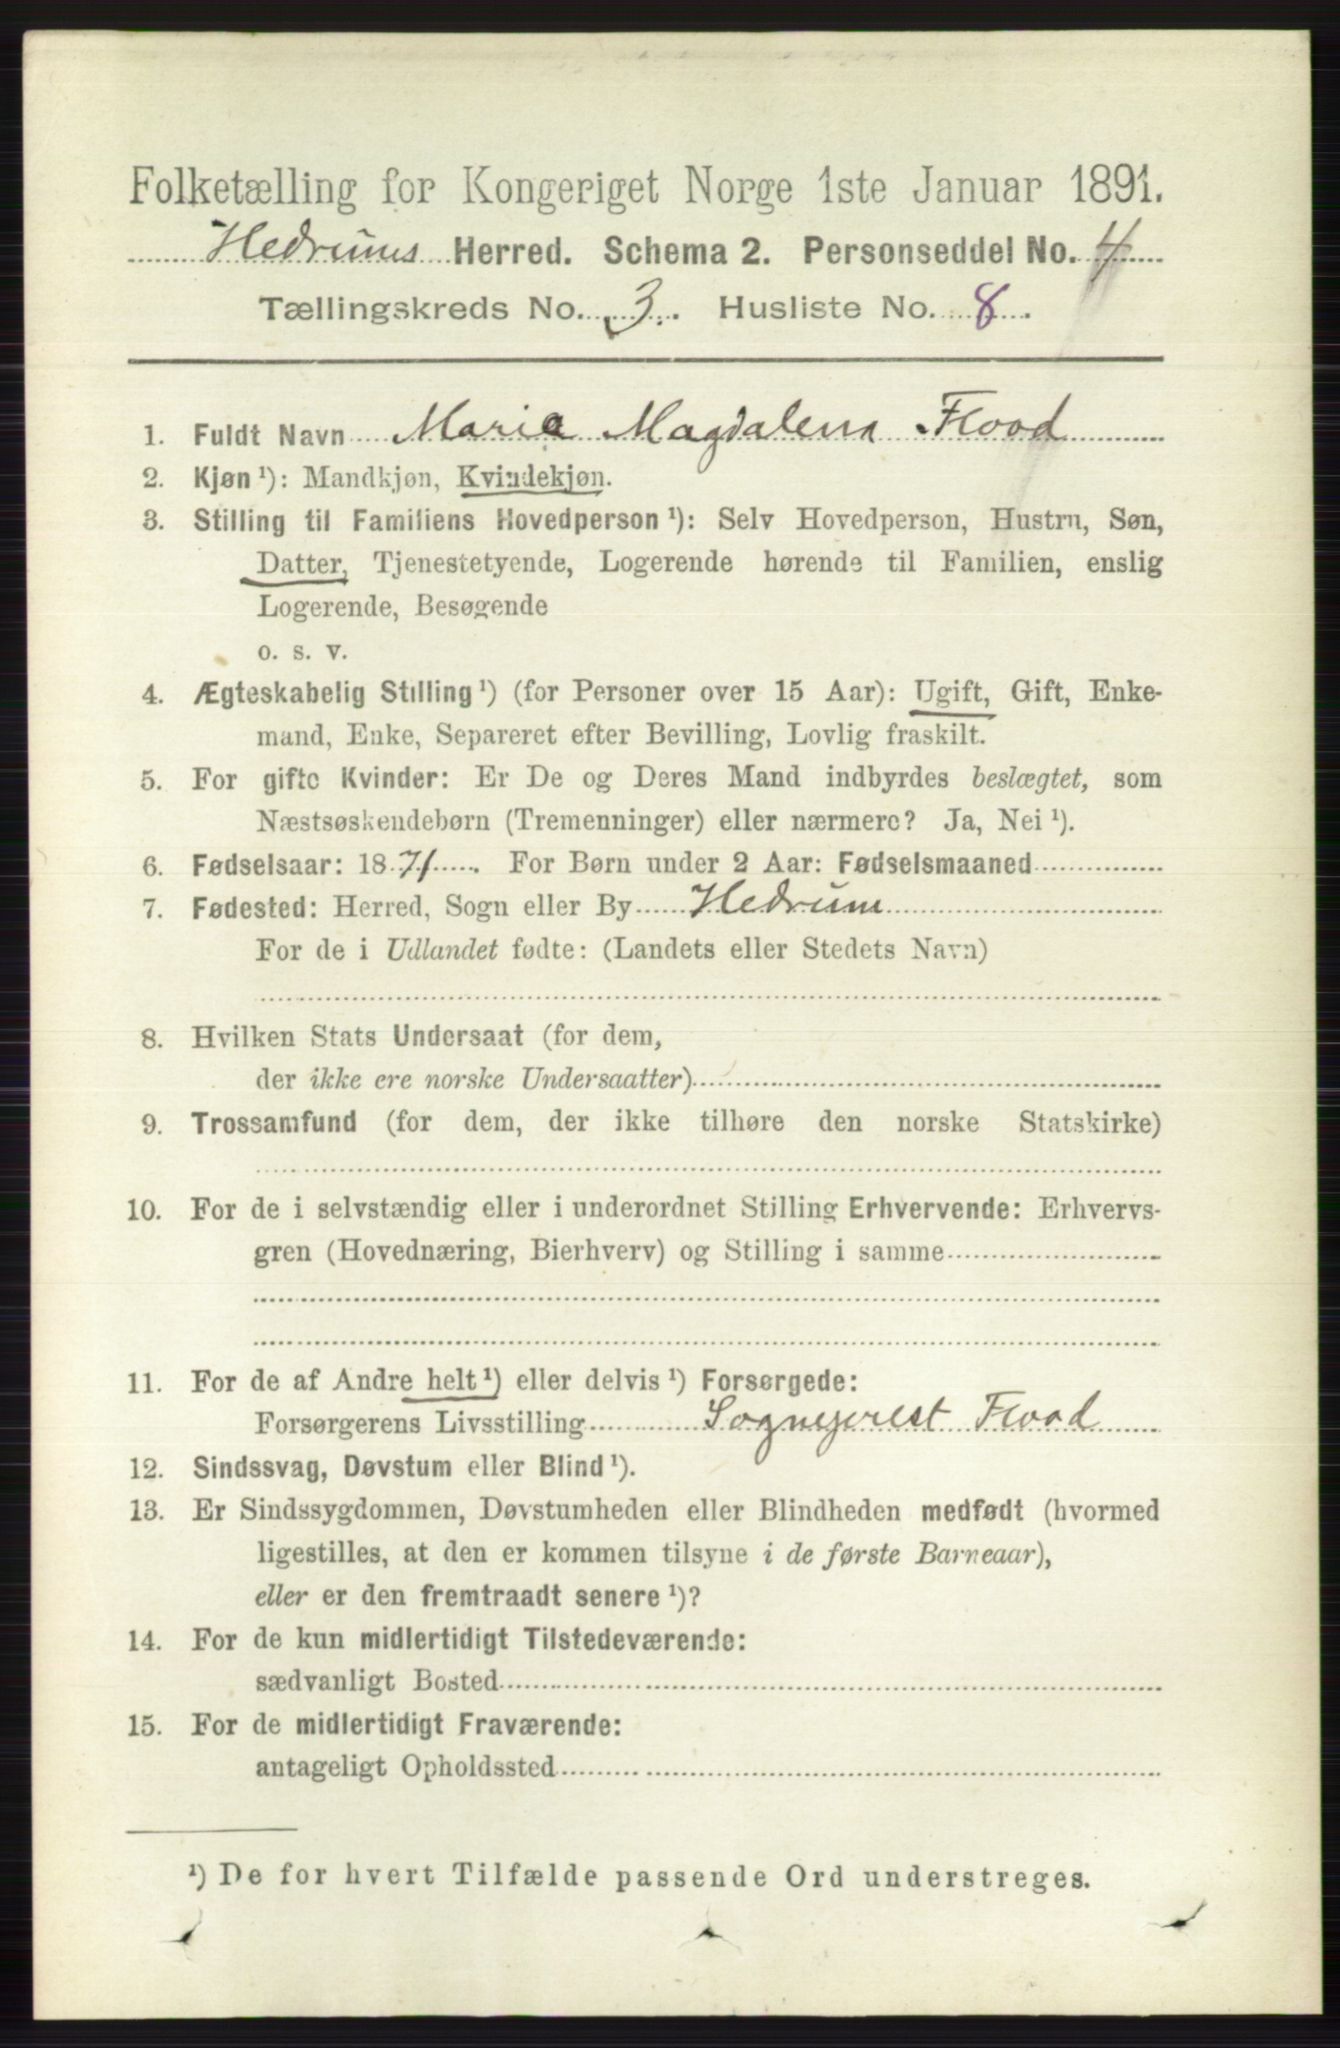 Folketælling for Kongeriget Norge 1ste Januar 1891.
Hedrums Herred. Schema 2. Personseddel No. 4
Tællingskreds No. 3. Husliste No. 8.
1. Fuldt Navn Maria Magdalena Flood
2. Kjøn¹): Mandkjøn, Kvindekjøn.
3. Stilling til Familiens Hovedperson¹): Selv Hovedperson, Hustru, Søn,
Datter, Tjenestetyende, Logerende hørende til Familien, enslig
Logerende, Besøgende
o. s. v.
4. Ægteskabelig Stilling¹) (for Personer over 15 Aar): Ugift, Gift, Enke-
mand, Enke, Separeret efter Bevilling, Lovlig fraskilt.
5. For gifte Kvinder: Er De og Deres Mand indbyrdes beslægtet, som
Næstsøskendebørn (Tremenninger) eller nærmere? Ja, Nei¹).
6. Fødselsaar: 1871. For Børn under 2 Aar: Fødselsmaaned
7. Fødested: Herred, Sogn eller By Hedrum
For de i Udlandet fødte: (Landets eller Stedets Navn)
8. Hvilken Stats Undersaat (for dem,
der ikke ere norske Undersaatter)
9. Trossamfund (for dem, der ikke tilhøre den norske Statskirke)
10. For de i selvstændig eller i underordnet Stilling Erhvervende: Erhvervs-
gren (Hovednæring, Bierhverv) og Stilling i samme
11. For de af Andre helt¹) eller delvis¹) Forsørgede:
Forsørgerens Livsstilling Sogneprest Flood
12. Sindssvag, Døvstum eller Blind¹).
13. Er Sindssygdommen, Døvstumheden eller Blindheden medfødt (hvormed
ligestilles, at den er kommen tilsyne i de første Barneaar),
eller er den fremtraadt senere¹)?
14. For de kun midlertidigt Tilstedeværende:
sædvanligt Bosted
15. For de midlertidigt Fraværende:
antageligt Opholdssted
¹) De for hvert Tilfælde passende Ord understreges.